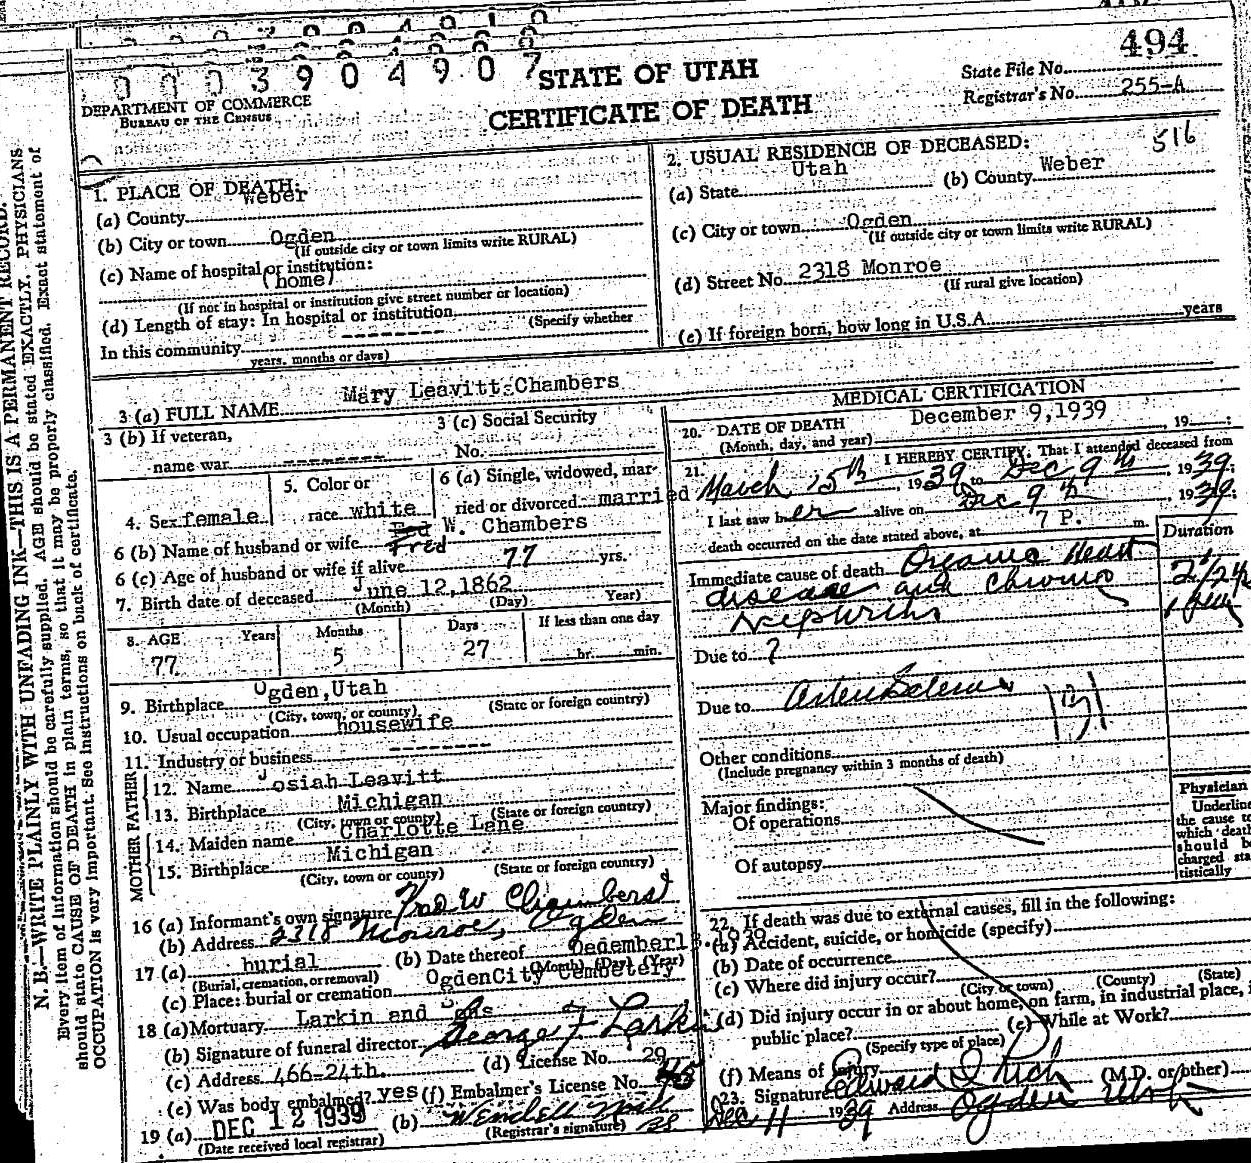 0003904907
STATE OF UTAH
CERTIFICATE OF DEATH
494
State File No.
Registrar's No. 255-A
DEPARTMENT OF COMMERCE
BUREAU OF THE CENSUS
516
1. PLACE OF DEATH:
(a) County Weber
(b) City or town Ogden
(If outside city or town limits write RURAL)
(c) Name of hospital or institution:
(home)
(If not in hospital or institution give street number or location)
(d) Length of stay: In hospital or institution
(Specify whether
In this community
years, months or days)
2. USUAL RESIDENCE OF DECEASED:
(a) State Utah (b) County Weber
(c) City or town Ogden
(If outside city or town limits write RURAL)
(d) Street No. 2318 Monroe
(If rural give location)
(e) If foreign born, how long in U.S.A. years
3 (a) FULL NAME Mary Leavitt Chambers
3 (b) If veteran,
name war
3 (c) Social Security
No.
4. Sex female
5. Color or
race white
6 (a) Single, widowed, mar-
ried or divorced married
6 (b) Name of husband or wife Fred W. Chambers
6 (c) Age of husband or wife if alive 77 yrs.
7. Birth date of deceased June 12, 1862
(Month) (Day) Year)
8. AGE Years Months Days If less than one day
77 5 27 hr. min.
9. Birthplace Ogden, Utah
(City, town, or county) (State or foreign country)
10. Usual occupation housewife
11. Industry or business
FATHER
12. Name Josiah Leavitt
13. Birthplace Michigan
(City, town or county) (State or foreign country)
MOTHER
14. Maiden name Charlotte Lane
15. Birthplace Michigan
(City, town or county) (State or foreign country)
16 (a) Informant's own signature Fred W Chambers
(b) Address 2318 Monroe, Ogden
17 (a) burial (b) Date thereof December 13, 1939
(Burial, cremation, or removal) (Month) (Day) (Year)
(c) Place: burial or cremation Ogden City Cemetery
18 (a) Mortuary Larkin and Sons
(b) Signature of funeral director George F Larkin
(c) Address 466-24th. (d) License No. 29
(e) Was body embalmed? yes (f) Embalmer's License No.
19 (a) DEC 12 1939 (b)
(Date received local registrar) (Registrar's signature)
MEDICAL CERTIFICATION
20. DATE OF DEATH December 9, 1939
(Month, day, and year) , 19 :
21. I HEREBY CERTIFY, That I attended deceased from
March 15th, 1939, to Dec 9th, 1939:
I last saw her alive on Dec 9th, 1939;
death occurred on the date stated above, at 7 P. m.
Duration
Immediate cause of death Organic Heart
disease and chronic
nephritis
Due to ?
Due to
131
Other conditions
(Include pregnancy within 3 months of death)
Major findings:
Of operations
Of autopsy
Physician
Underline
the cause to
which death
should be
charged sta-
tistically
22. If death was due to external causes, fill in the following:
(a) Accident, suicide, or homicide (specify)
(b) Date of occurrence
(c) Where did injury occur?
(City or town) (County) (State)
(d) Did injury occur in or about home, on farm, in industrial place, i
public place? (e) While at Work?
(Specify type of place)
(f) Means of Injury
23. Signature Edward I Rich (M.D. or other)
Dec 11 1939 Address Ogden Utah
N. B.—WRITE PLAINLY WITH UNFADING INK—THIS IS A PERMANENT RECORD.
Every item of information should be carefully supplied. AGE should be stated EXACTLY. PHYSICIANS
should state CAUSE OF DEATH in plain terms, so that it may be properly classified. Exact statement of
OCCUPATION is very important. See instructions on back of certificate.